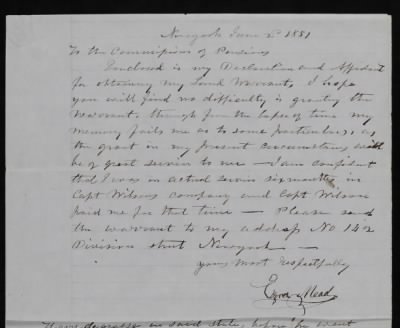 Newyork June 2d 1851
To the Commission of Pensions
Enclosed is my Declaration and Affidavit
for obtaining my Land Warrant, I hope
you will find no difficulty in granting the
Warrant, though from the lapse of time my
memory fails me as to some particulars, as
the grant in my present circumstances will
be of great service to me — I am confident
that I was in actual service six months in
Capt Wilsons company and Capt Wilson
paid me for that time — Please send
the warrant to my address No 142
Division street Newyork —
yours most respectfully
Mead
in said state, before he went